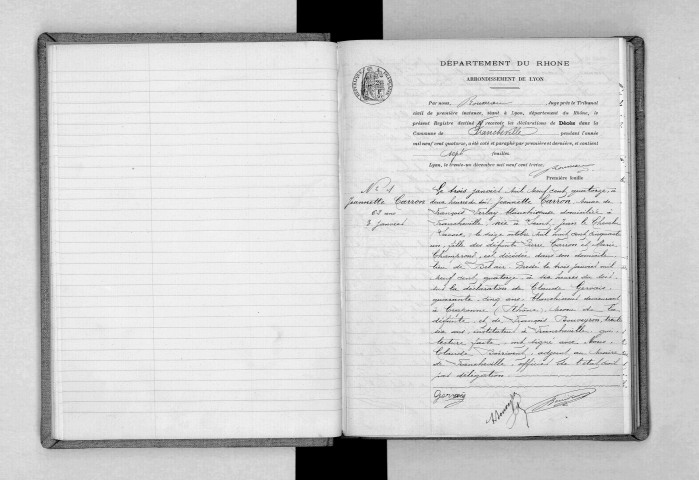 DÉPARTEMENT DU RHONE
ARRONDISSEMENT DE LYON
Par nous, Juge près le Tribunal
civil de première instance, séant à Lyon, département du Rhône, le
présent Registre destiné à recevoir les déclarations de Décès dans la
Commune de Francheville pendant l'année
mil neuf cent quatorze, a été coté et paraphé par première et dernière, et contient
sept feuilles.
Lyon, le trente-un décembre mil neuf cent treize.
Première feuille
N° 1
Jeannette Carron
62 ans
3 janvier
Le trois janvier mil neuf cent quatorze, à
deux heures du soir, Jeannette Carron, veuve de
François blanchisseuse domiciliée à
Francheville, née à
le seize octobre mil huit cent cinquante
un, fille des défunts Pierre Carron et Marie
est décédée dans son domicile
lieu de Bel air. Dressé le trois janvier mil
neuf cent quatorze, à dix heures du
sur la déclaration de Claude Gervais
quarante cinq ans, blanchisseur demeurant
à Craponne (Rhône) neveu de la
défunte et de François trente
six ans, instituteur à Francheville, qui
lecture faite, ont signé avec Nous
Claude adjoint au maire
de Francheville, officier de l'état civil
par délégation
Gervais